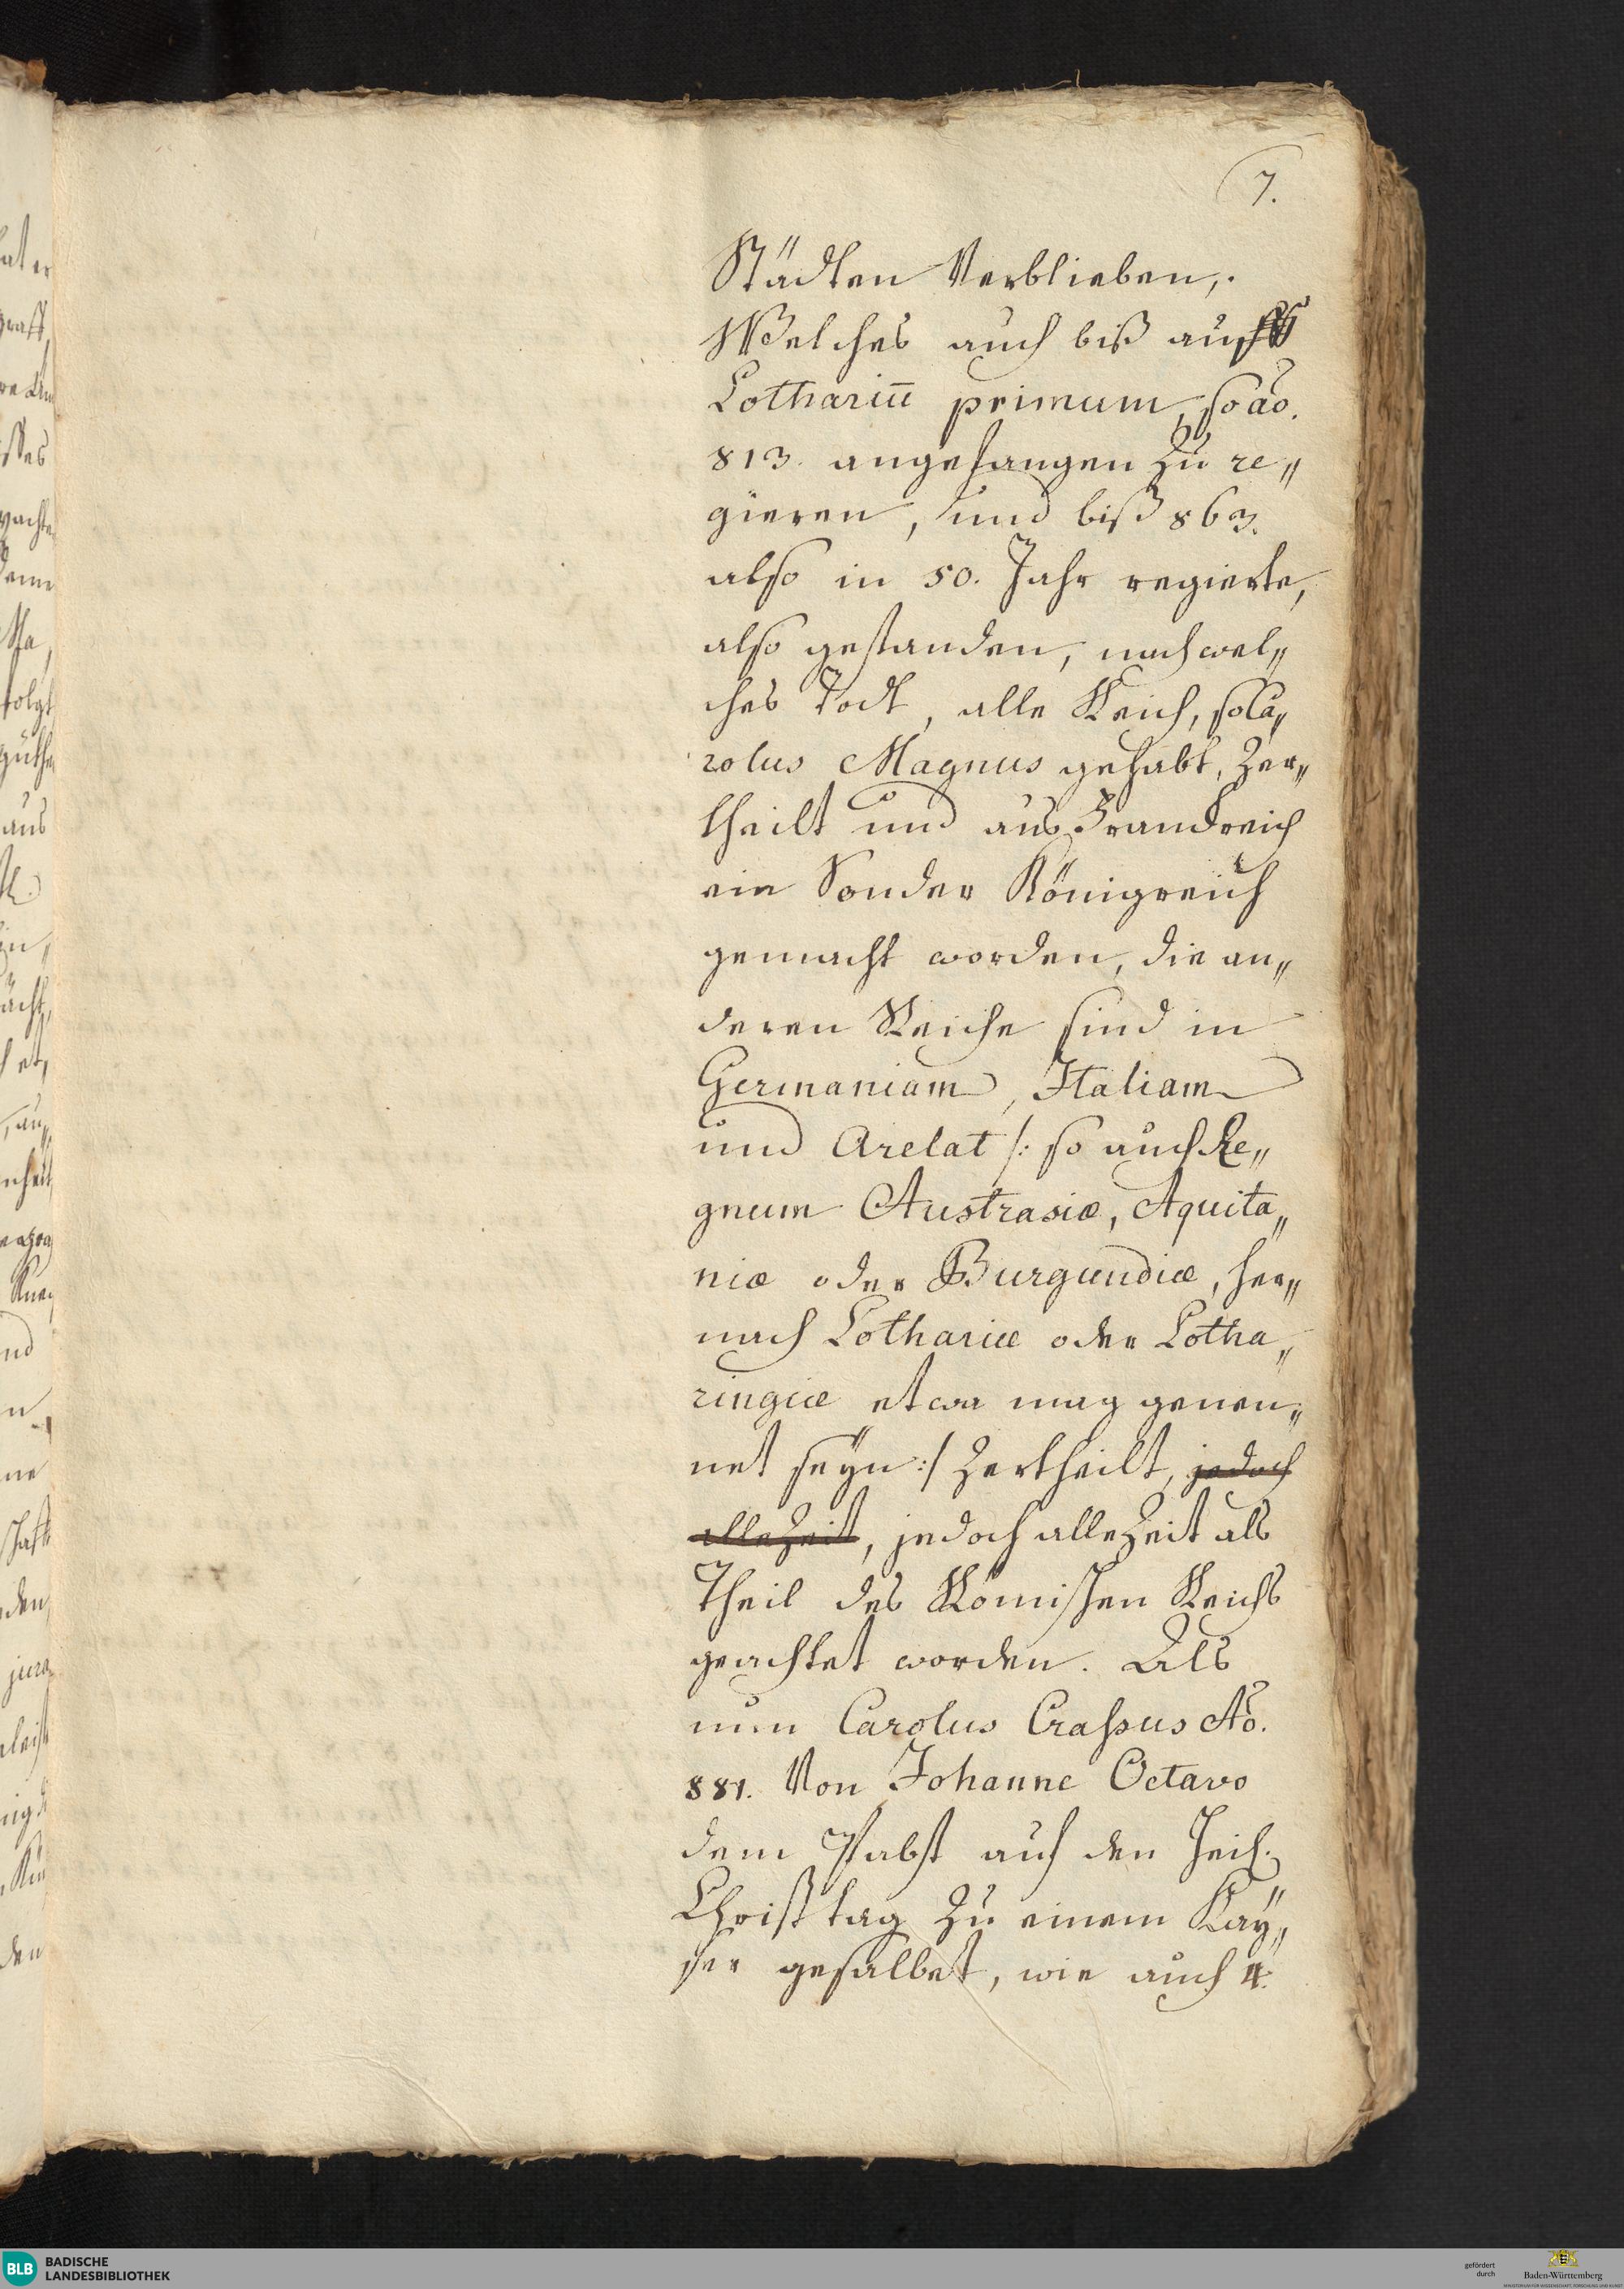 7.
Städten Verblieben,.
Welches auch biß auf
Lothariū primum, so ao.
813. angefangen zu re„
gieren, und biß 863.
also in 50. Jahr regierte,
also gestanden, nach wel„
ches Todt, alle Reich, so Ca„
rolus Magnus gehabt, zer„
theilt und aus Franckreich
ein Sonder Königreich
gemacht worden, die an„
deren Reiche sind in
Germaniam, Italiam
und Arelat /: so auch Re„
gnum Austrasiæ, Aquita„
niæ oder Burgundiæ, her„
nach Lothariæ oder Lotha„
ringiæ etwa mag genen„
net seÿn :/ zertheilt, jedoch
allezeit, jedoch allezeit als
Theil des Römischen Reichs
geachtet worden. Als
nun Carolus Crassus Ao.
881. Von Johanne Octavo
dem Pabst auf den Heil.
Christtag zu einem Kaÿ„
ser gesalbet, wie auch 4.
BLB BADISCHE
LANDESBIBLIOTHEK
gefördert
durch
Baden-Württemberg